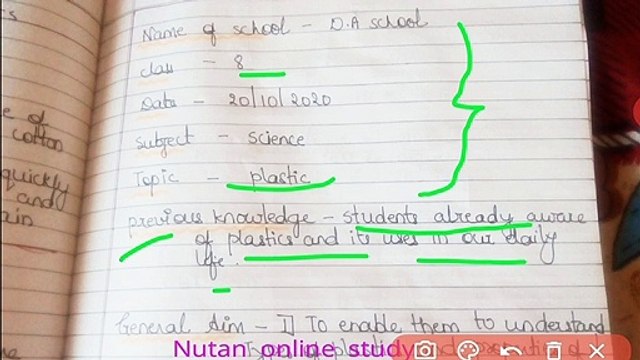 Name of school - D.A school
class - 8
Date - 20/10/2020
subject - science
Topic - plastic
previous knowledge - students already aware
of plastics and its uses in our daily
life.
General Aim - 1] To enable them to understand
Nutan online study
e of
cotton
quickly
and